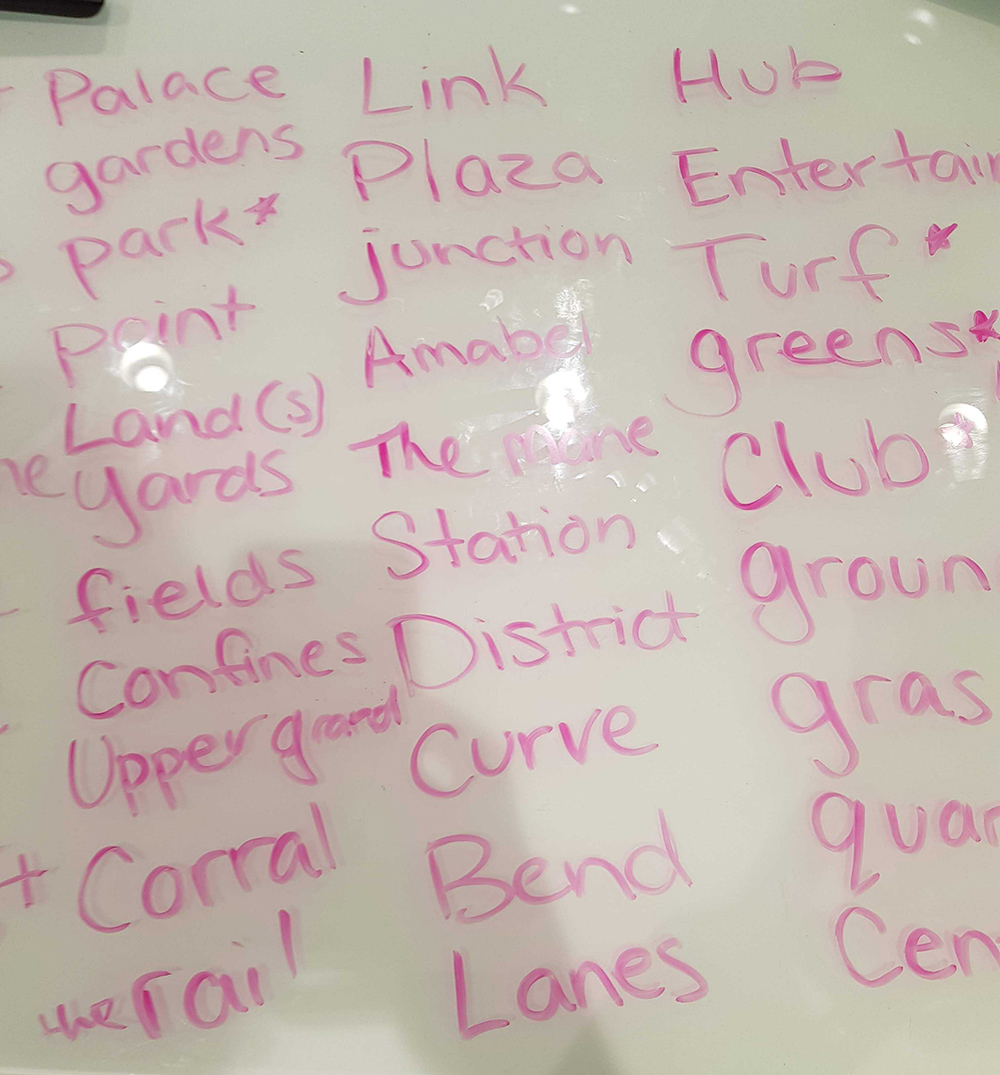 Palace
gardens
park*
Point
Land(s)
yards
fields
Confines
Upper grand
Corral
the rail
Link
Plaza
junction
Amabel
The mane
Station
District
Curve
Bend
Lanes
Hub
Entertain
Turf*
greens*
Club*
groun
gras
quar
Cen